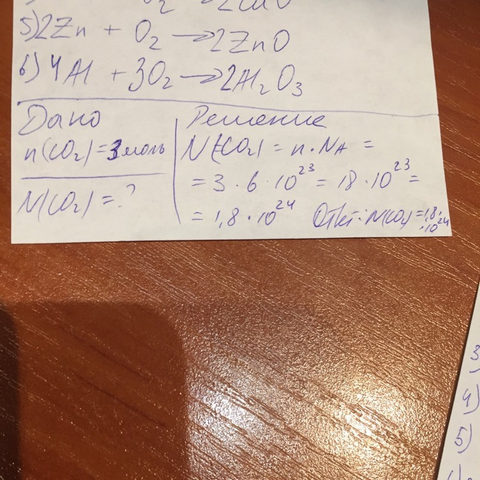 5) 2Zn + O₂ → 2ZnO
6) 4Al + 3O₂ → 2Al₂O₃
Дано
n(CO₂) = 3 моль
N(CO₂) = ?
Решение
N(CO₂) = n · NA =
= 3 · 6 · 10²³ = 18 · 10²³ =
= 1,8 · 10²⁴ Ответ: N(CO₂) = 1,8 ·
· 10²⁴
3)
4)
5)